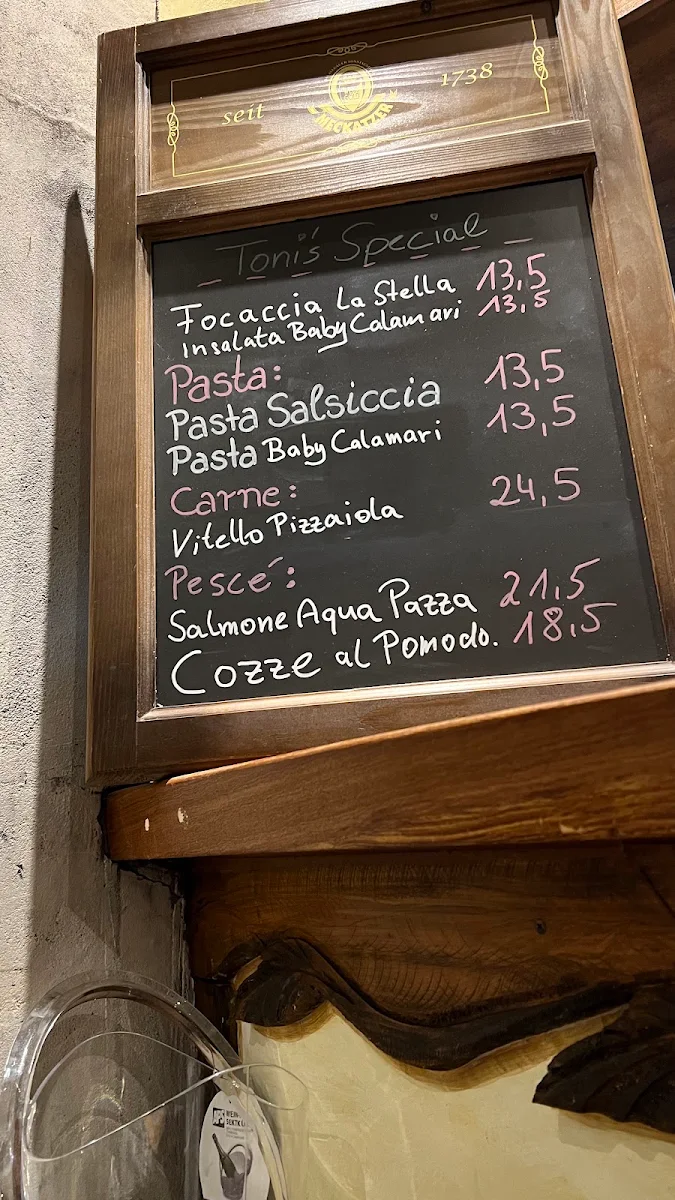 seit 1738
NECKATZER
Toni's Special
Focaccia La Stella 13,5
Insalata Baby Calamari 13,5
Pasta:
Pasta Salsiccia 13,5
Pasta Baby Calamari 13,5
Carne: 24,5
Vitello Pizzaiola
Pescé:
Salmone Aqua Pazza 21,5
Cozze al Pomodo. 18,5